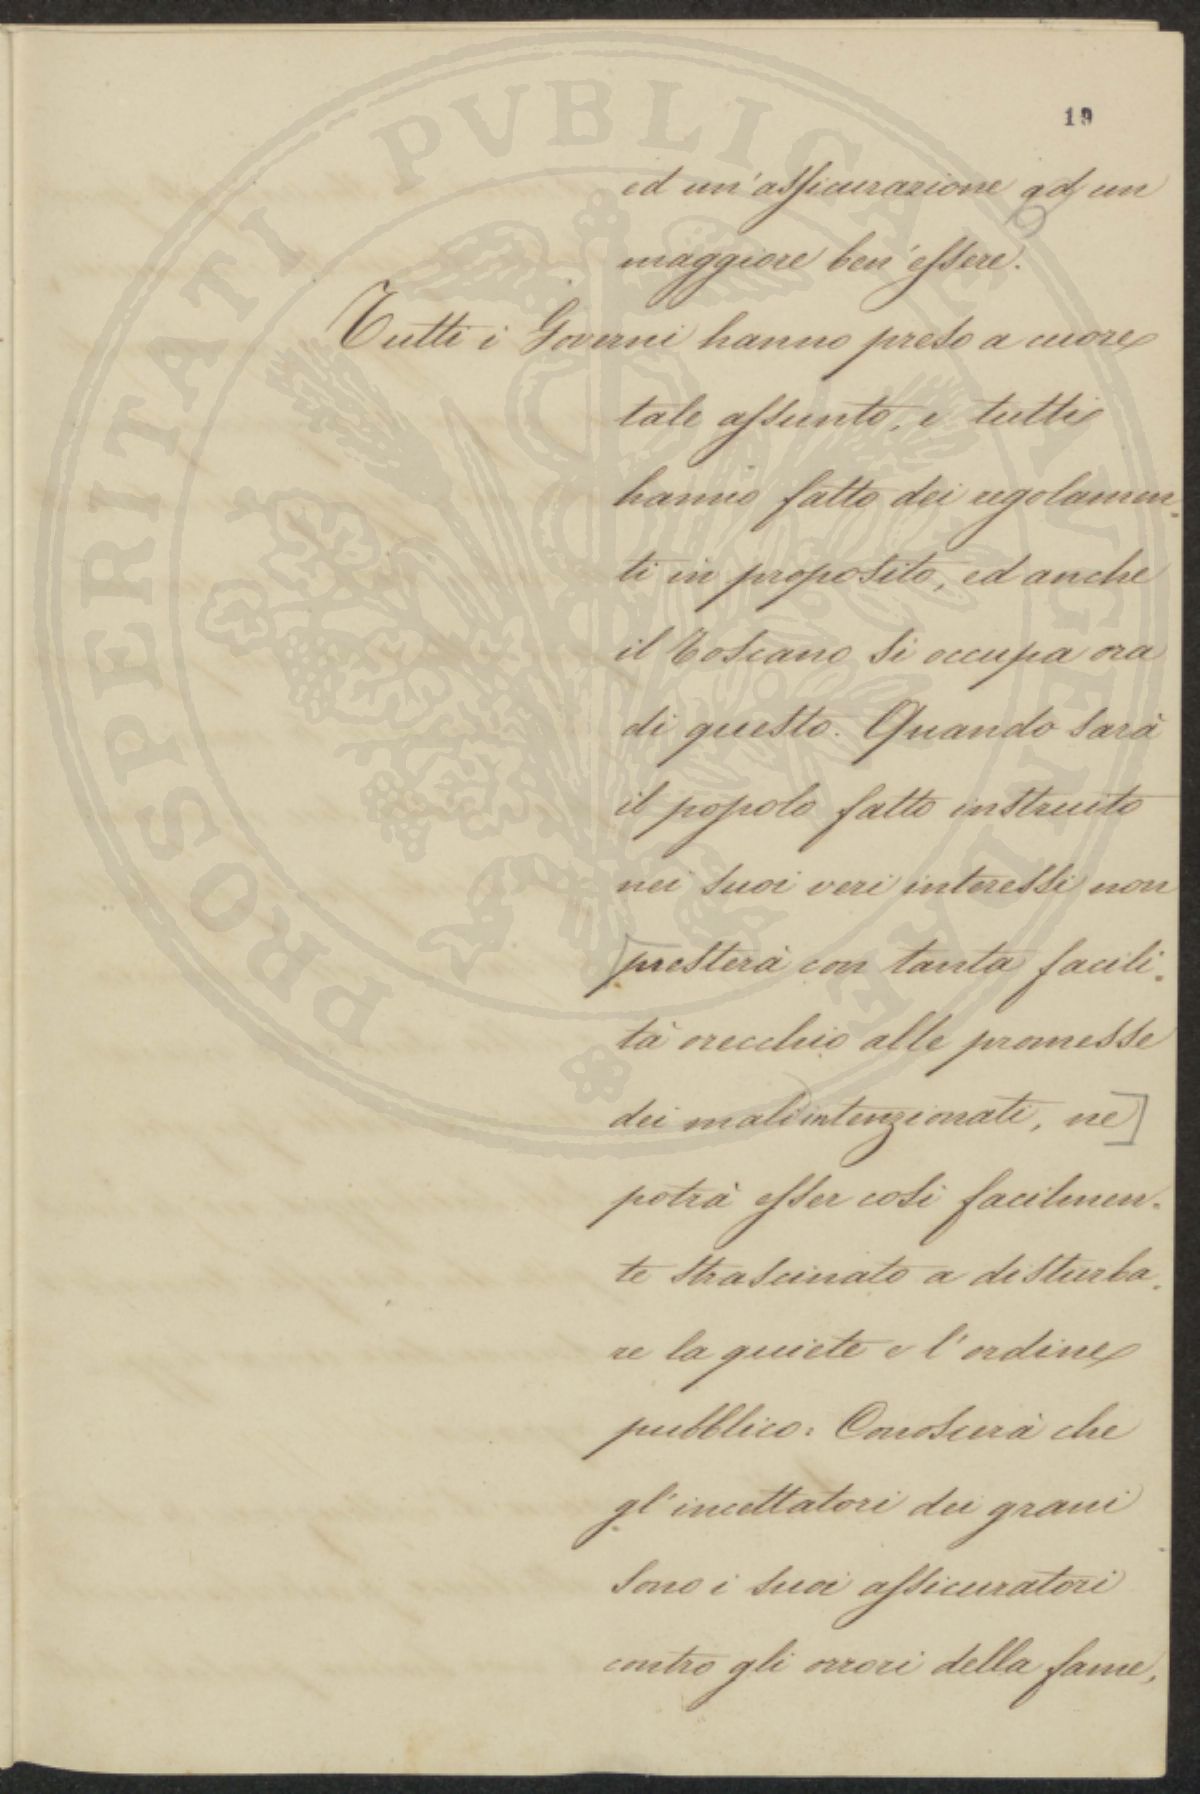 19
ed un'assicurazione ad un
maggiore ben'essere.
Tutti i Governi hanno preso a cuore
tale assunto, e tutti
hanno fatto dei regolamen-
ti in proposito, ed anche
il Toscano si occupa ora
di questo. Quando sarà
il popolo fatto instruito
nei suoi veri interessi non
[presterà con tanta facili-
tà orecchio alle promesse
dei malintenzionati, ne]
potrà esser così facilmen-
te strascinato a disturba-
re la quiete e l'ordine
pubblico: Conoscerà che
gl'incettatori dei grani
sono i suoi assicuratori
contro gli orrori della fame,
PROSPERITATI PVBLICAE AVGENDAE